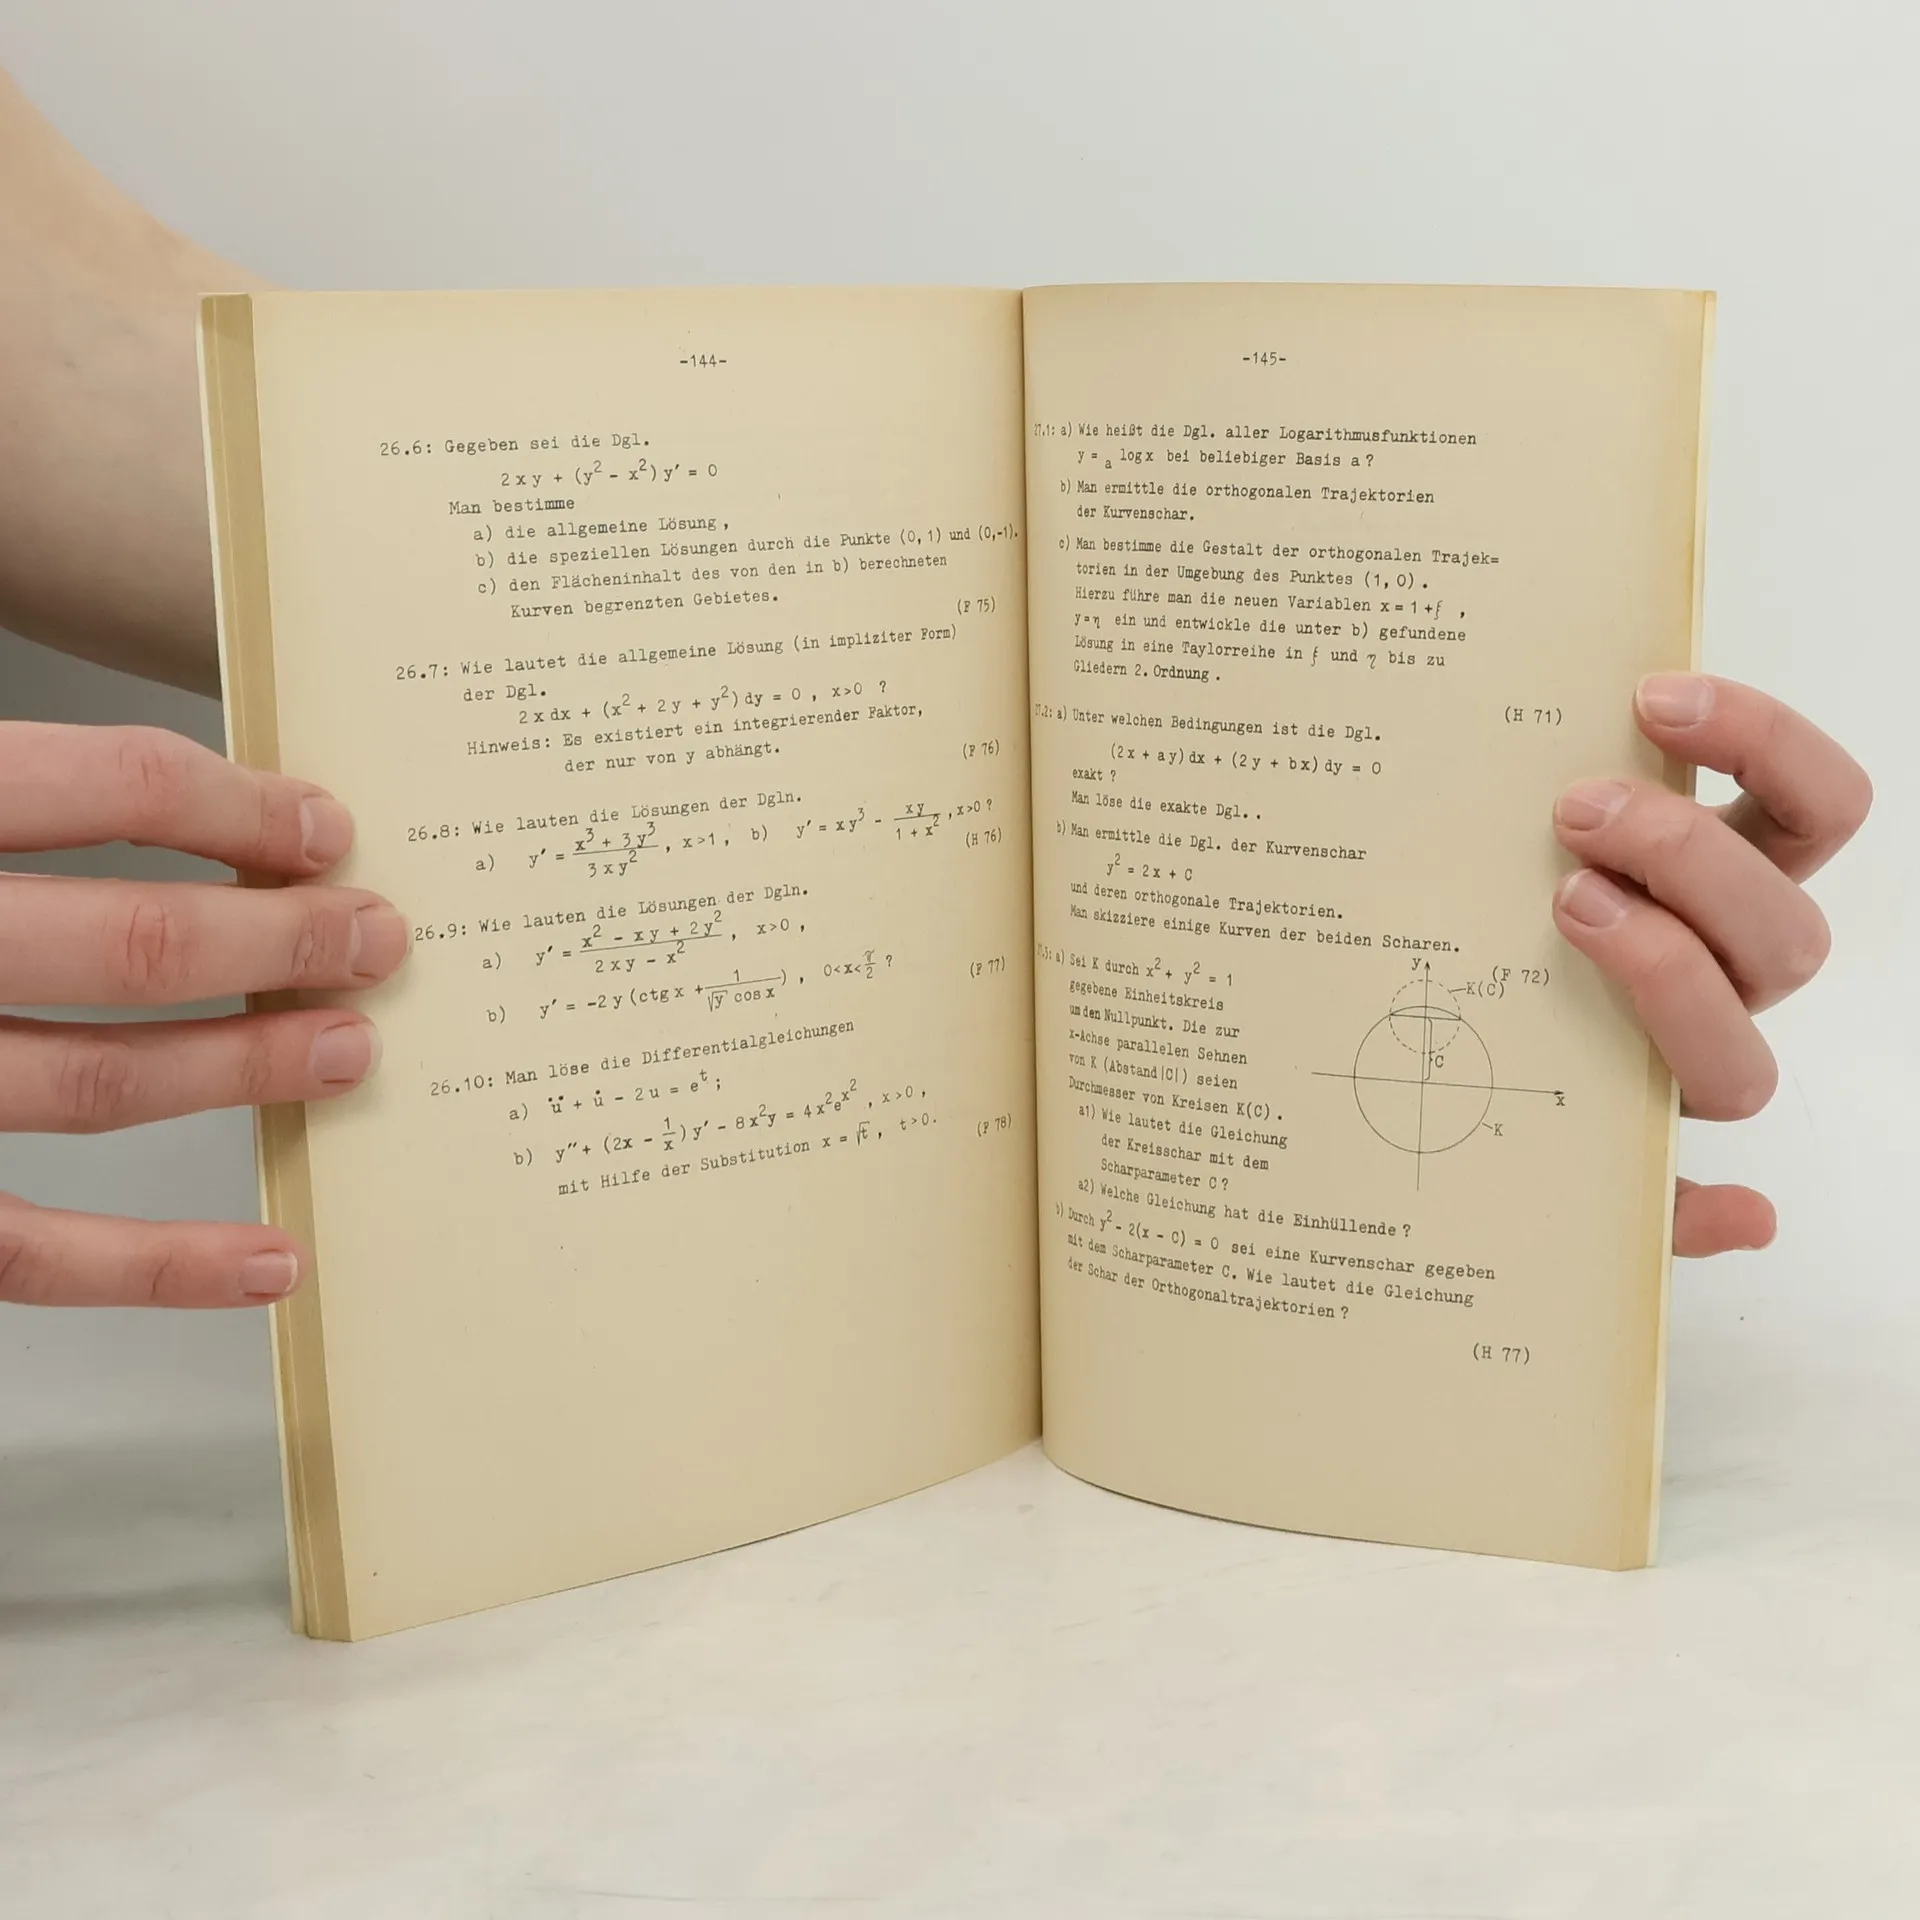 -144-
26.6: Gegeben sei die Dgl.
2xy + (y² - x²) y' = 0
Man bestimme
a) die allgemeine Lösung,
b) die speziellen Lösungen durch die Punkte (0,1) und (0,-1).
c) den Flächeninhalt des von den in b) berechneten
Kurven begrenzten Gebietes.
(F 75)
26.7: Wie lautet die allgemeine Lösung (in impliziter Form)
der Dgl.
2x dx + (x² + 2y + y²) dy = 0, x>0 ?
Hinweis: Es existiert ein integrierender Faktor,
der nur von y abhängt.
(F 76)
26.8: Wie lauten die Lösungen der Dgln.
a) y' = (x³ + 3y³)/(3xy²), x>1, b) y' = xy³ - xy/(1 + x²), x>0 ?
(H 76)
26.9: Wie lauten die Lösungen der Dgln.
a) y' = (x² - xy + 2y²)/(2xy - x²), x>0,
b) y' = -2y (ctg x + 1/(√y cos x)), 0<x<π/2 ?
(F 77)
26.10: Man löse die Differentialgleichungen
a) ü + u̇ - 2u = eᵗ;
b) y'' + (2x - 1/x) y' - 8x²y = 4x²e^x², x>0,
mit Hilfe der Substitution x = √t, t>0.
(F 78)
-145-
27.1: a) Wie heißt die Dgl. aller Logarithmusfunktionen
y = ₐlog x bei beliebiger Basis a ?
b) Man ermittle die orthogonalen Trajektorien
der Kurvenschar.
c) Man bestimme die Gestalt der orthogonalen Trajek=
torien in der Umgebung des Punktes (1,0).
Hierzu führe man die neuen Variablen x = 1 + ξ ,
y = η ein und entwickle die unter b) gefundene
Lösung in eine Taylorreihe in ξ und η bis zu
Gliedern 2. Ordnung.
(H 71)
27.2: a) Unter welchen Bedingungen ist die Dgl.
(2x + ay) dx + (2y + bx) dy = 0
exakt ?
Man löse die exakte Dgl..
b) Man ermittle die Dgl. der Kurvenschar
y² = 2x + C
und deren orthogonale Trajektorien.
Man skizziere einige Kurven der beiden Scharen.
(F 72)
a) Sei K durch x² + y² = 1
gegebene Einheitskreis
um den Nullpunkt. Die zur
x-Achse parallelen Sehnen
von K (Abstand |C|) seien
Durchmesser von Kreisen K(C).
a1) Wie lautet die Gleichung
der Kreisschar mit dem
Scharparameter C ?
a2) Welche Gleichung hat die Einhüllende ?
y
K(C)
C
x
K
b) Durch y² - 2(x - C) = 0 sei eine Kurvenschar gegeben
mit dem Scharparameter C. Wie lautet die Gleichung
der Schar der Orthogonaltrajektorien ?
(H 77)